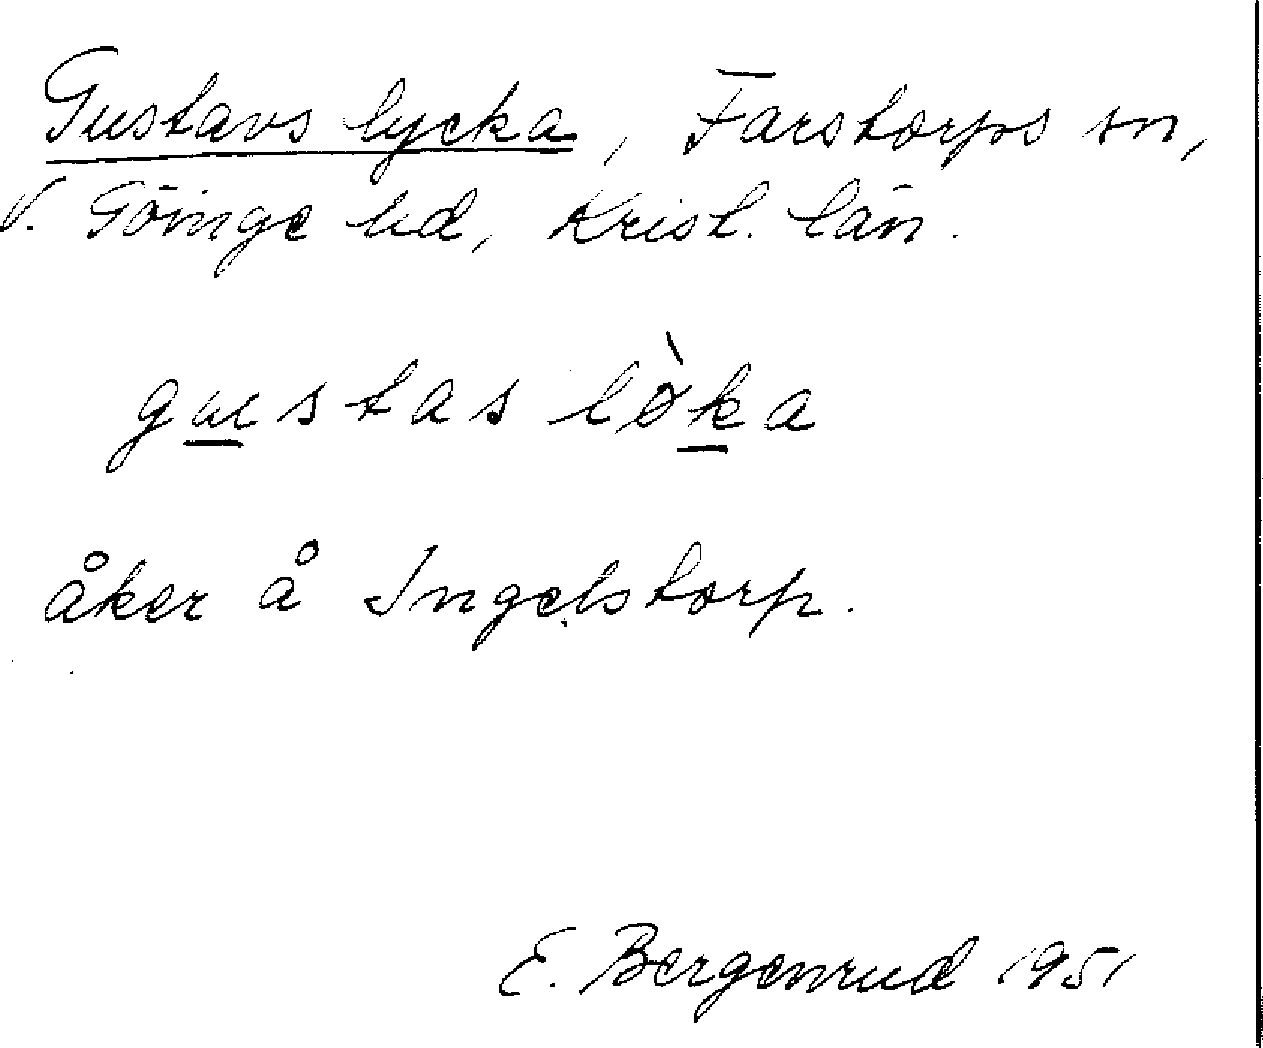 Gustavs lycka, Farstorps sn,
V. Göinge hd, Krist. län.
gustas lø̀ka
åker å Ingelstorp.
E. Bergenrud 1951